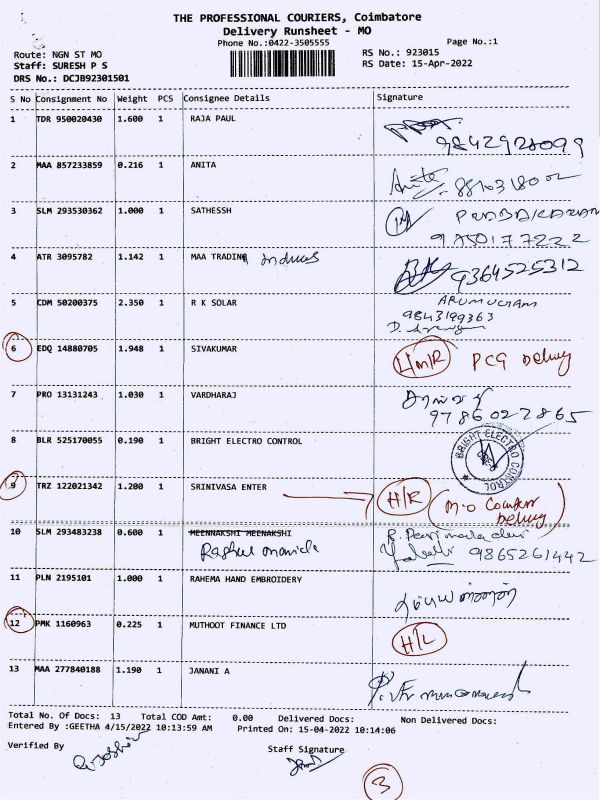 THE PROFESSIONAL COURIERS, Coimbatore
Delivery Runsheet - MO
Phone No.:0422-3505555
Page No.:1
Route: NGN ST MO
RS No.: 923015
Staff: SURESH P S
RS Date: 15-Apr-2022
DRS No.: DCJB92301501
S No Consignment No Weight PCS Consignee Details Signature
1 TDR 950020430 1.600 1 RAJA PAUL
9842928099
2 MAA 857233859 0.216 1 ANITA
3 SLM 293530362 1.000 1 SATHESSH
PRABAKARAN
4 ATR 3095782 1.142 1 MAA TRADING 9364525312
5 CDM 50200375 2.350 1 R K SOLAR ARUMUGAM
9843199363
6 EDQ 14880705 1.948 1 SIVAKUMAR
7 PRO 13131243 1.030 1 VARDHARAJ
9786022865
8 BLR 525170055 0.190 1 BRIGHT ELECTRO CONTROL BRIGHT ELECTRO CONTROL
9 TRZ 122021342 1.200 1 SRINIVASA ENTER H/R M.O Counter
Delivery
10 SLM 293483238 0.600 1 MEENNAKSHI MEENAKSHI
9865261442
11 PLN 2195101 1.000 1 RAHEMA HAND EMBROIDERY
12 PMK 1160963 0.225 1 MUTHOOT FINANCE LTD H/L
13 MAA 277840188 1.190 1 JANANI A
Total No. Of Docs: 13 Total COD Amt: 0.00 Delivered Docs: Non Delivered Docs:
Entered By :GEETHA 4/15/2022 10:13:59 AM Printed On: 15-04-2022 10:14:06
Verified By Staff Signature
3